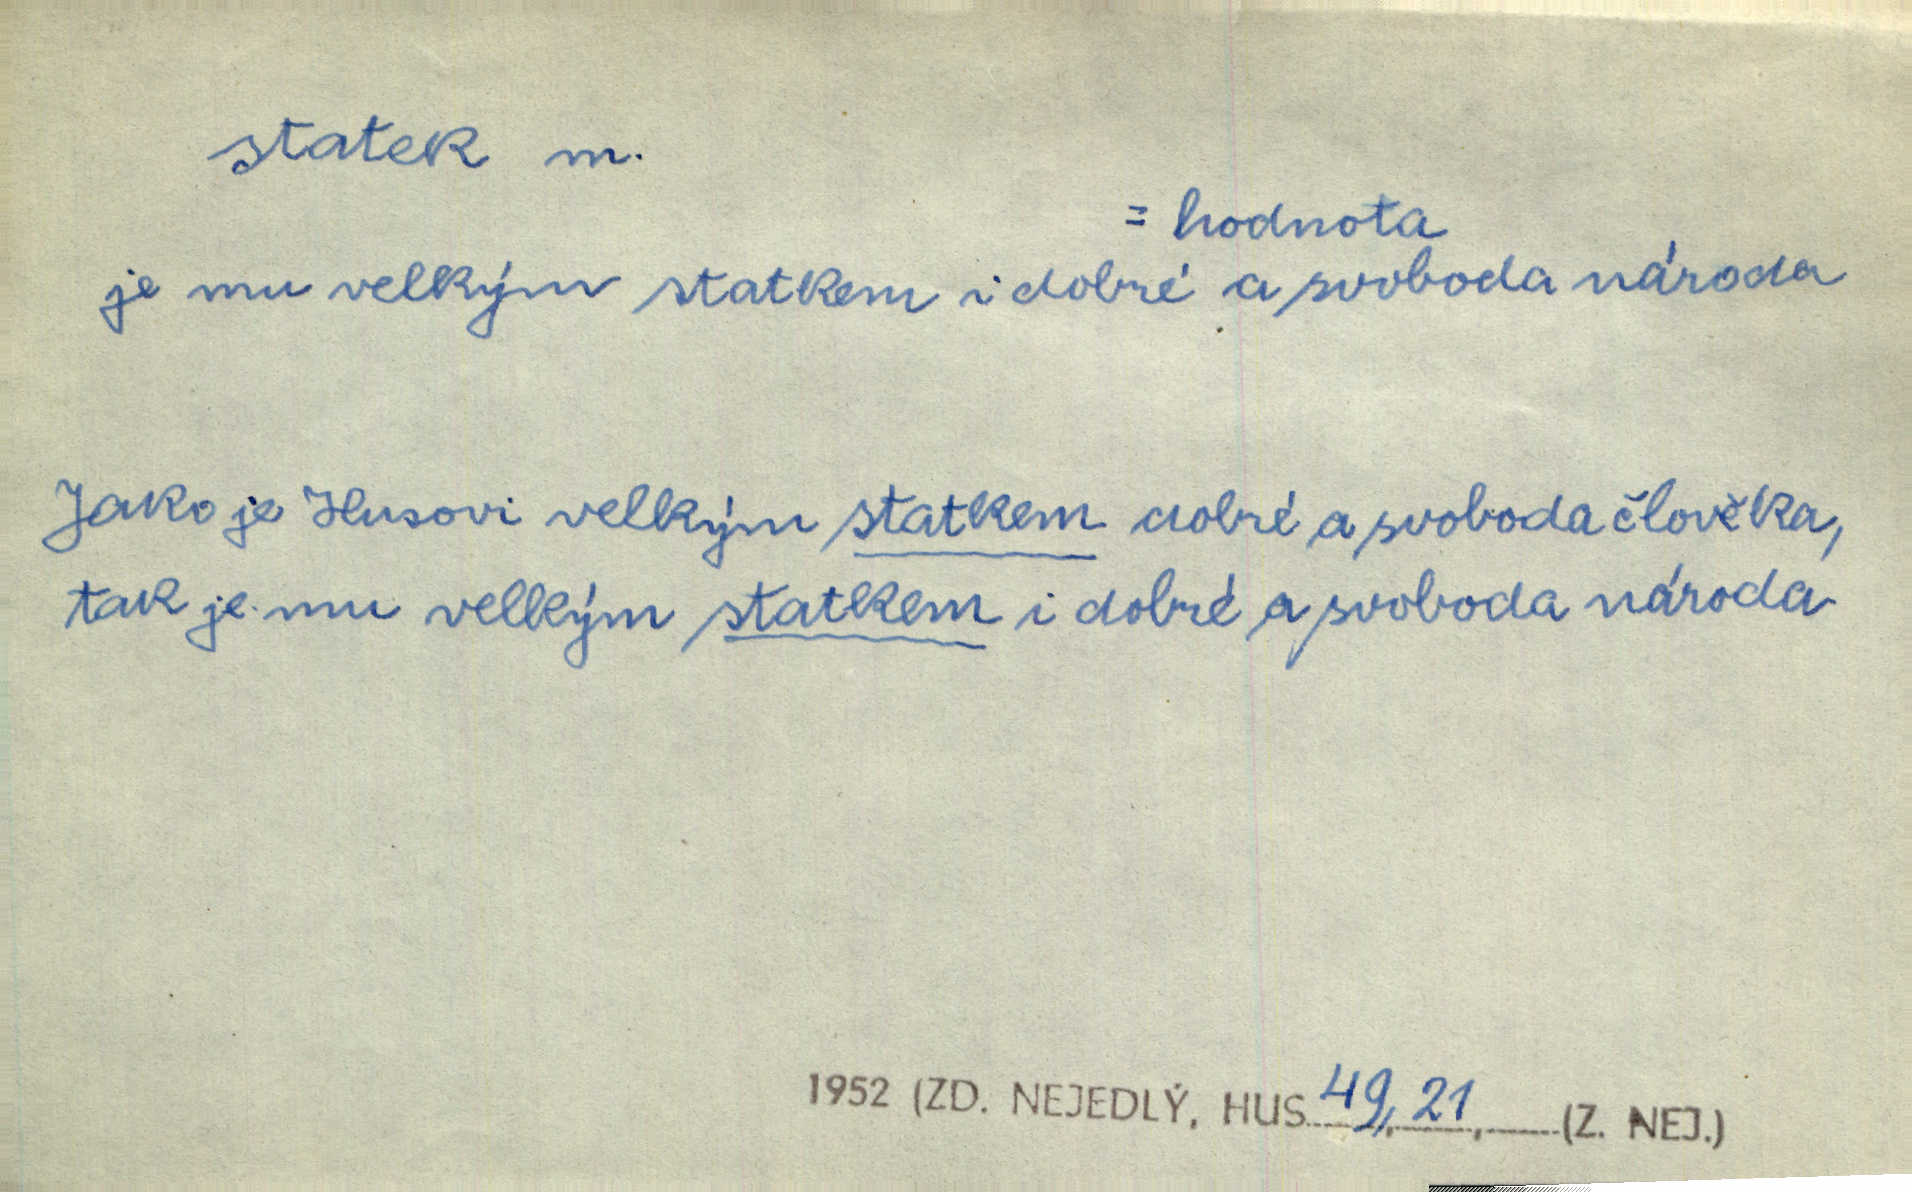 statek m.
= hodnota
je mu velkým statkem i dobré a svoboda národa
Jako je Husovi velkým statkem dobré a svoboda člověka,
tak je mu velkým statkem i dobré a svoboda národa
1952 (ZD. NEJEDLÝ, HUS 49, 21, (Z. NEJ.)